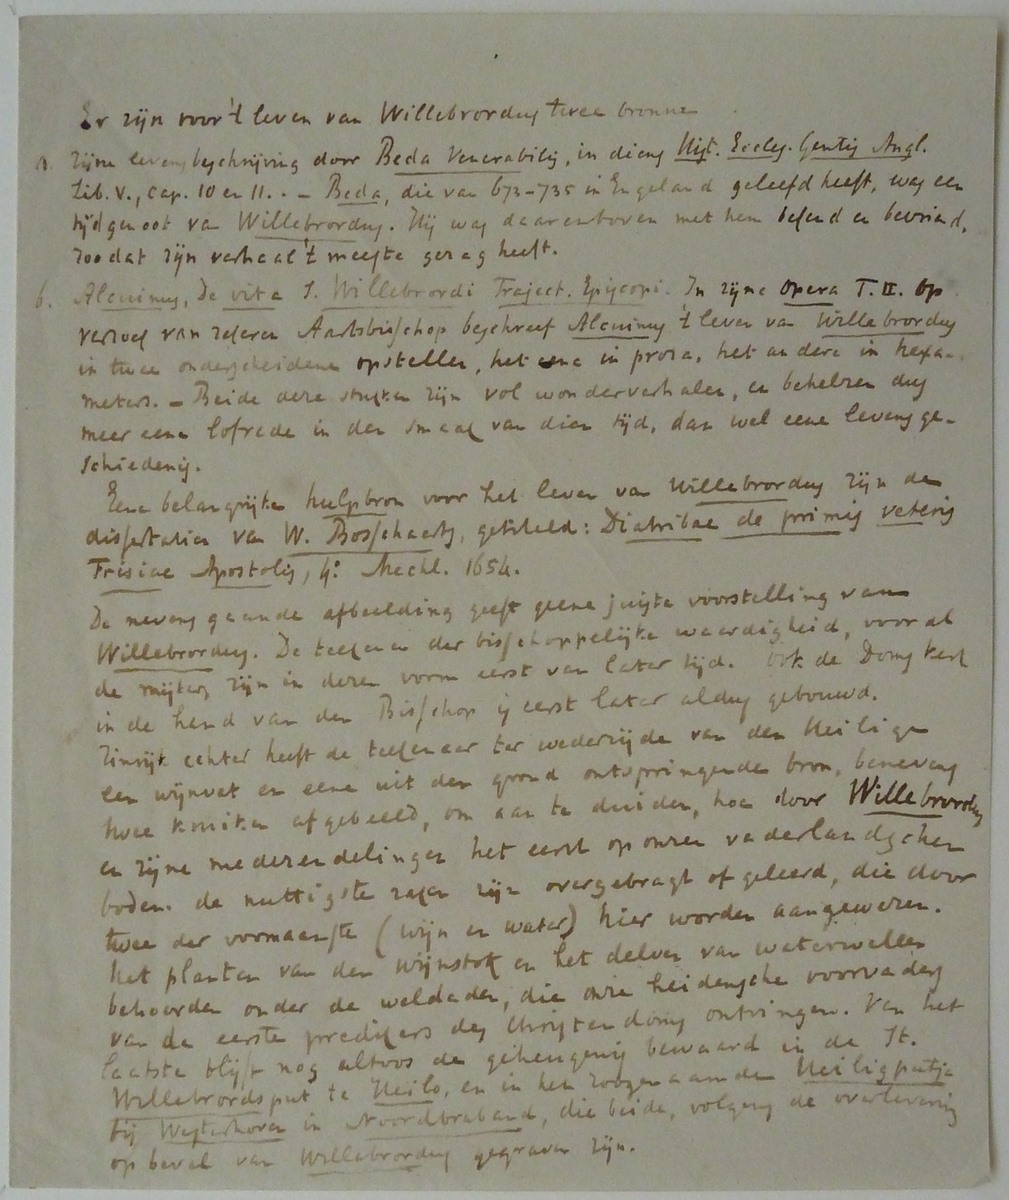 Er zijn voor 't leven van Willebrordus twee bronnen
a. Zijne levensbeschrijving door Beda Venerabilis, in diens Hist. Eccles. Gentis Angl.
Lib. V., cap. 10 en 11. . – Beda, die van 673–735 in Engeland geleefd heeft, was een
tijdgenoot van Willebrordus. Hij was daarenboven met hem bekend en bevriend,
zoodat zijn verhaal 't meeste gezag heeft.
b. Alcuinus, De vita S. Willebrordi Traject. Episcopi. In zijne Opera T. II. Op
verzoek van zekeren Aartsbisschop beschreef Alcuinus 't leven van Willebrordus
in twee onderscheidene opstellen, het eene in proza, het andere in hexa-
meters. – Beide deze stukken zijn vol wonderverhalen, en behelzen dus
meer eene lofrede in den smaak van dien tijd, dan wel eene levensge-
schiedenis.
Eene belangrijke hulpbron voor het leven van Willebrordus zijn de
dissertatien van W. Bosschaerts, getiteld: Diatribae de primis veteris
Frisiae Apostolis, 4o. Mechl. 1650.
De nevensgaande afbeelding geeft geene juiste voorstelling van
Willebrordus. De teekenen der bisschoppelijke waardigheid, vooral
de mijters, zijn in dezen vorm eerst van later tijd. Ook de Domskerk
in de hand van den Bisschop is eerst later aldus gebouwd.
Zinrijk echter heeft de teekenaar ter wederzijde van den Heiligen
een wijnvat en eene uit den grond ontspringende bron, benevens
twee kruiken afgebeeld, om aan te duiden, hoe door Willebrordus
en zijne medezendelingen het eerst op onzen vaderlandschen
bodem de nuttigste zaken zijn overgebragt of geleerd, die door
twee der voornaamste (wijn en water) hier worden aangewezen.
Het planten van den wijnstok en het delven van waterwellen
behoorden onder de weldaden, die onze heidensche voorvaders
van de eerste predikers des Christendoms ontvingen. Van het
laatste blijft nog altoos de geheugenis bewaard in de St.
Willebrordsput te Heilo, en in het zoogenaamde Heiligputje
bij Westerhoven in Noordbraband, die beide, volgens de overlevering
op bevel van Willebrordus gegraven zijn.